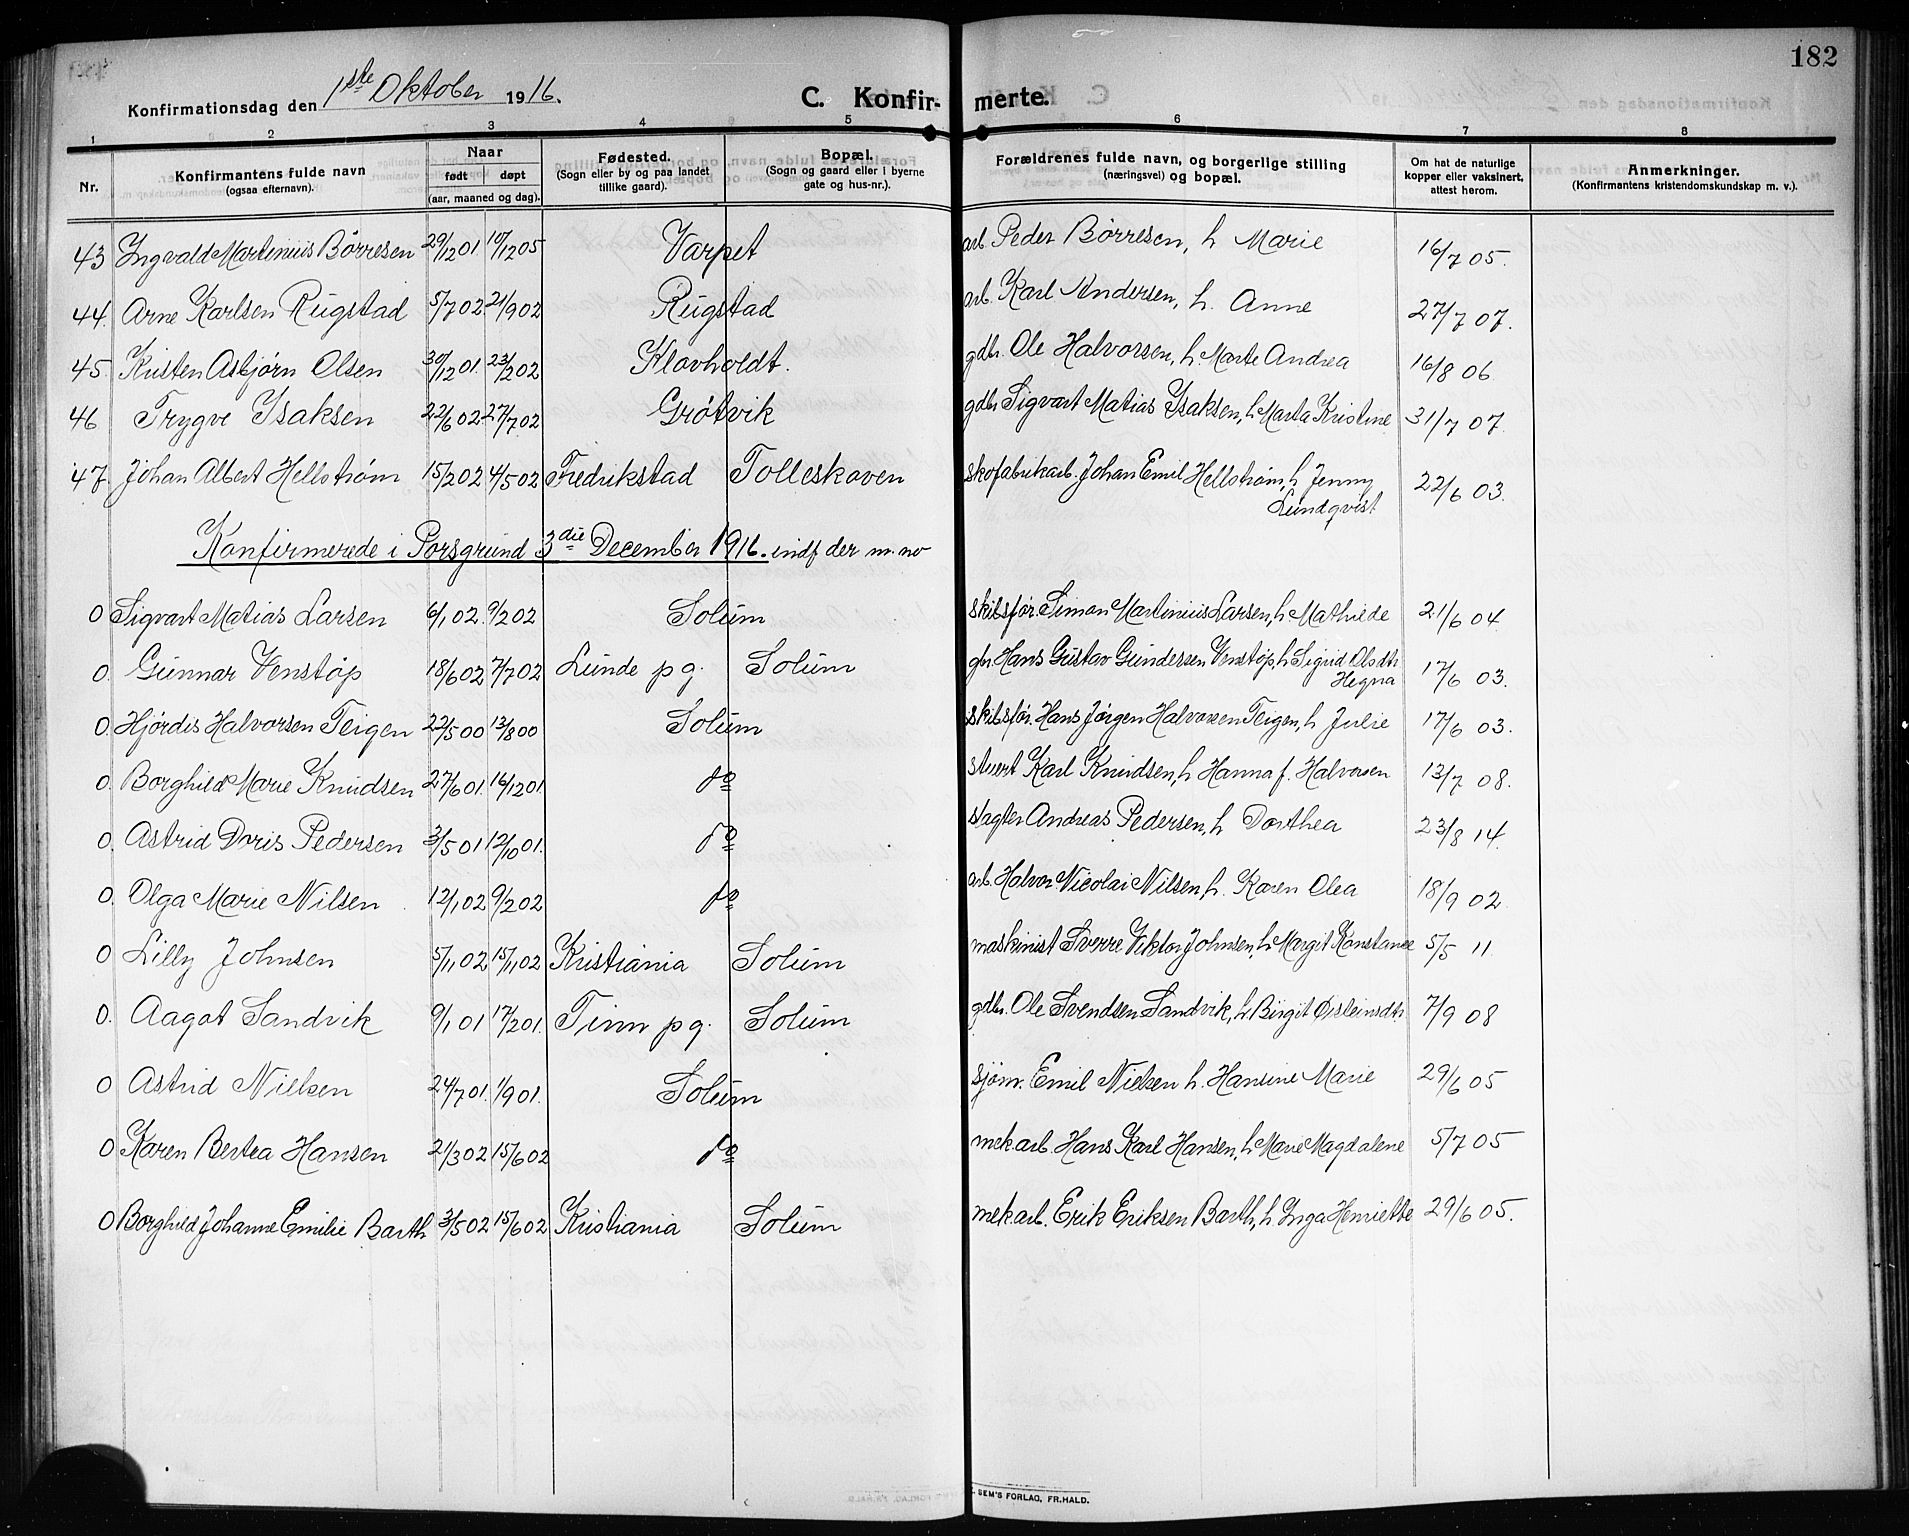 182
Konfirmationsdag den 1ste Oktober 1916. C. Konfir- merte.
1 2 3 4 5 6 7 8
Nr. Konfirmantens fulde navn (ogsaa efternavn). Naar født døpt (aar, maaned og dag). Fødested. (Sogn eller by og paa landet tillike gaard). Bopæl. (Sogn og gaard eller i byerne gate og hus-nr.). Forældrenes fulde navn, og borgerlige stilling (næringsvei) og bopæl. Om hat de naturlige kopper eller vaksinert, attest herom. Anmerkninger. (Konfirmantens kristendomskundskap m. v.).
43 Ingvald Martinius Børresen 29/12 01. 10/12 05 Varpet arb. Peder Børresen, h Marie 16/7 05.
44. Arne Karlsen Rugstad 5/7 02. 21/9 02 Rugstad arb. Karl Andersen, h. Anne 27/7 07.
45. Kristen Asbjørn Olsen 30/12 01. 23/2 02 Klovholdt. gdbr. Ole Halvorsen, h. Marte Andrea 16/8 06
46 Trygve Isaksen 22/6 02. 27/7 02 Grøtvik gdbr Sigvart Matias Isaksen, h Marta Kristine 31/7 07.
47. Johan Albert Hellstrøm 15/2 02 4/5 02 Fredrikstad Tolleskoven skofabrikarb. Johan Emil Hellstrøm, h Jenny Lundqvist 22/6 03.
Konfirmerede i Porsgrund 3die December 1916. indf der m. no
0 Sigvart Matias Larsen 6/1 02. 9/2 02 Solum skibsfør. Simon Martinius Larsen, h Mathilde 21/6 04
0. Gunnar Venstøp 18/6 02 7/7 02 Lunde pg. Solum gbr Hans Gustav Gundersen Venstøp, h Sigrid Olsdtr Hegna 17/6 03.
0. Hjørdis Halvorsen Teigen 22/5 00 13/8 00 Solum skibsfør. Hans Jørgen Halvorsen Teigen, h Julie 17/6 03.
0. Borghild Marie Knudsen 27/6 01. 16/12 01 do stuert Karl Knudsen, h Hanna f. Halvorsen 13/7 08.
0. Astrid Doris Pedersen 3/5 01 12/10 01. do slagter Andreas Pedersen, h Dorthea 23/8 14.
0. Olga Marie Nilsen 12/1 02 9/2 02 do arb. Halvor Nicolai Nilsen, h. Karen Olea 18/9 02
0 Lilly Johnsen 5/1 02 15/1 02 Kristiania Solum maskinist Sverre Viktor Johnsen, h Margit Konstance 5/5 11
0. Aagot Sandvik 9/1 01 17/2 01. Tinn pg. Solum gdbr. Ole Svendsen Sandvik, h Birgit Øisteinsdtr 7/9 08
0 Astrid Nielsen 24/7 01. 1/9 01. Solum sjøm. Emil Nielsen h. Hansine Marie 29/6 05
0 Karen Bertea Hansen 21/3 02 15/6 02 do mek. arb. Hans Karl Hansen, h Marie Magdalene 5/7 05
0 Borghild Johanne Emilie Barth 3/5 02 15/6 02 Kristiania Solum mek. arb. Erik Eriksen Barth, h Inga Henriette 29/6 05.
SEM'S FORLAG, FR.HALD.